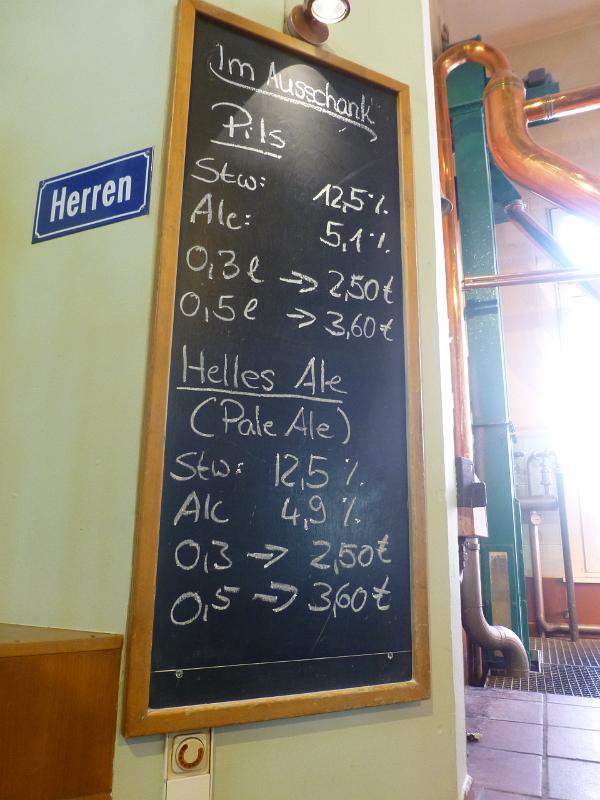 Im Ausschank
Pils
Stw: 12,5%
Alc: 5,1%
0,3l → 2,50€
0,5l → 3,60€
Helles Ale
(Pale Ale)
Stw: 12,5%
Alc 4,9%
0,3 → 2,50€
0,5 → 3,60€
Herren